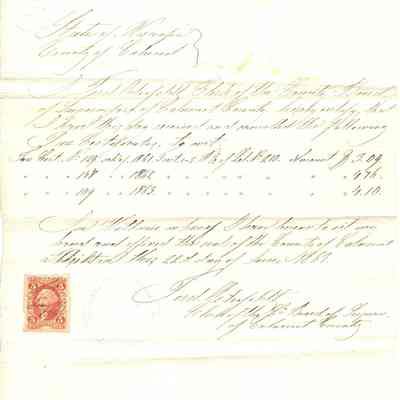 State of Wisconsin
County of Calumet
I Fred Clerk of the County Board
of Supervisors of Calumet County hereby certify that
I have this day received and canceled the following
Tax Certificates, to wit:
Tax Cert. No. 129 sale of 1861 Amount $ 7.09
" " 148 " 1862 " " " " " " 4.76
" " 199 " 1863 " " " " " " 4.10
In Witness whereof I have hereunto set my
hand and affixed the seal of the County of Calumet
at this 22d day of June 1867.
Fred
Clerk of the Board of Superv
of Calumet County